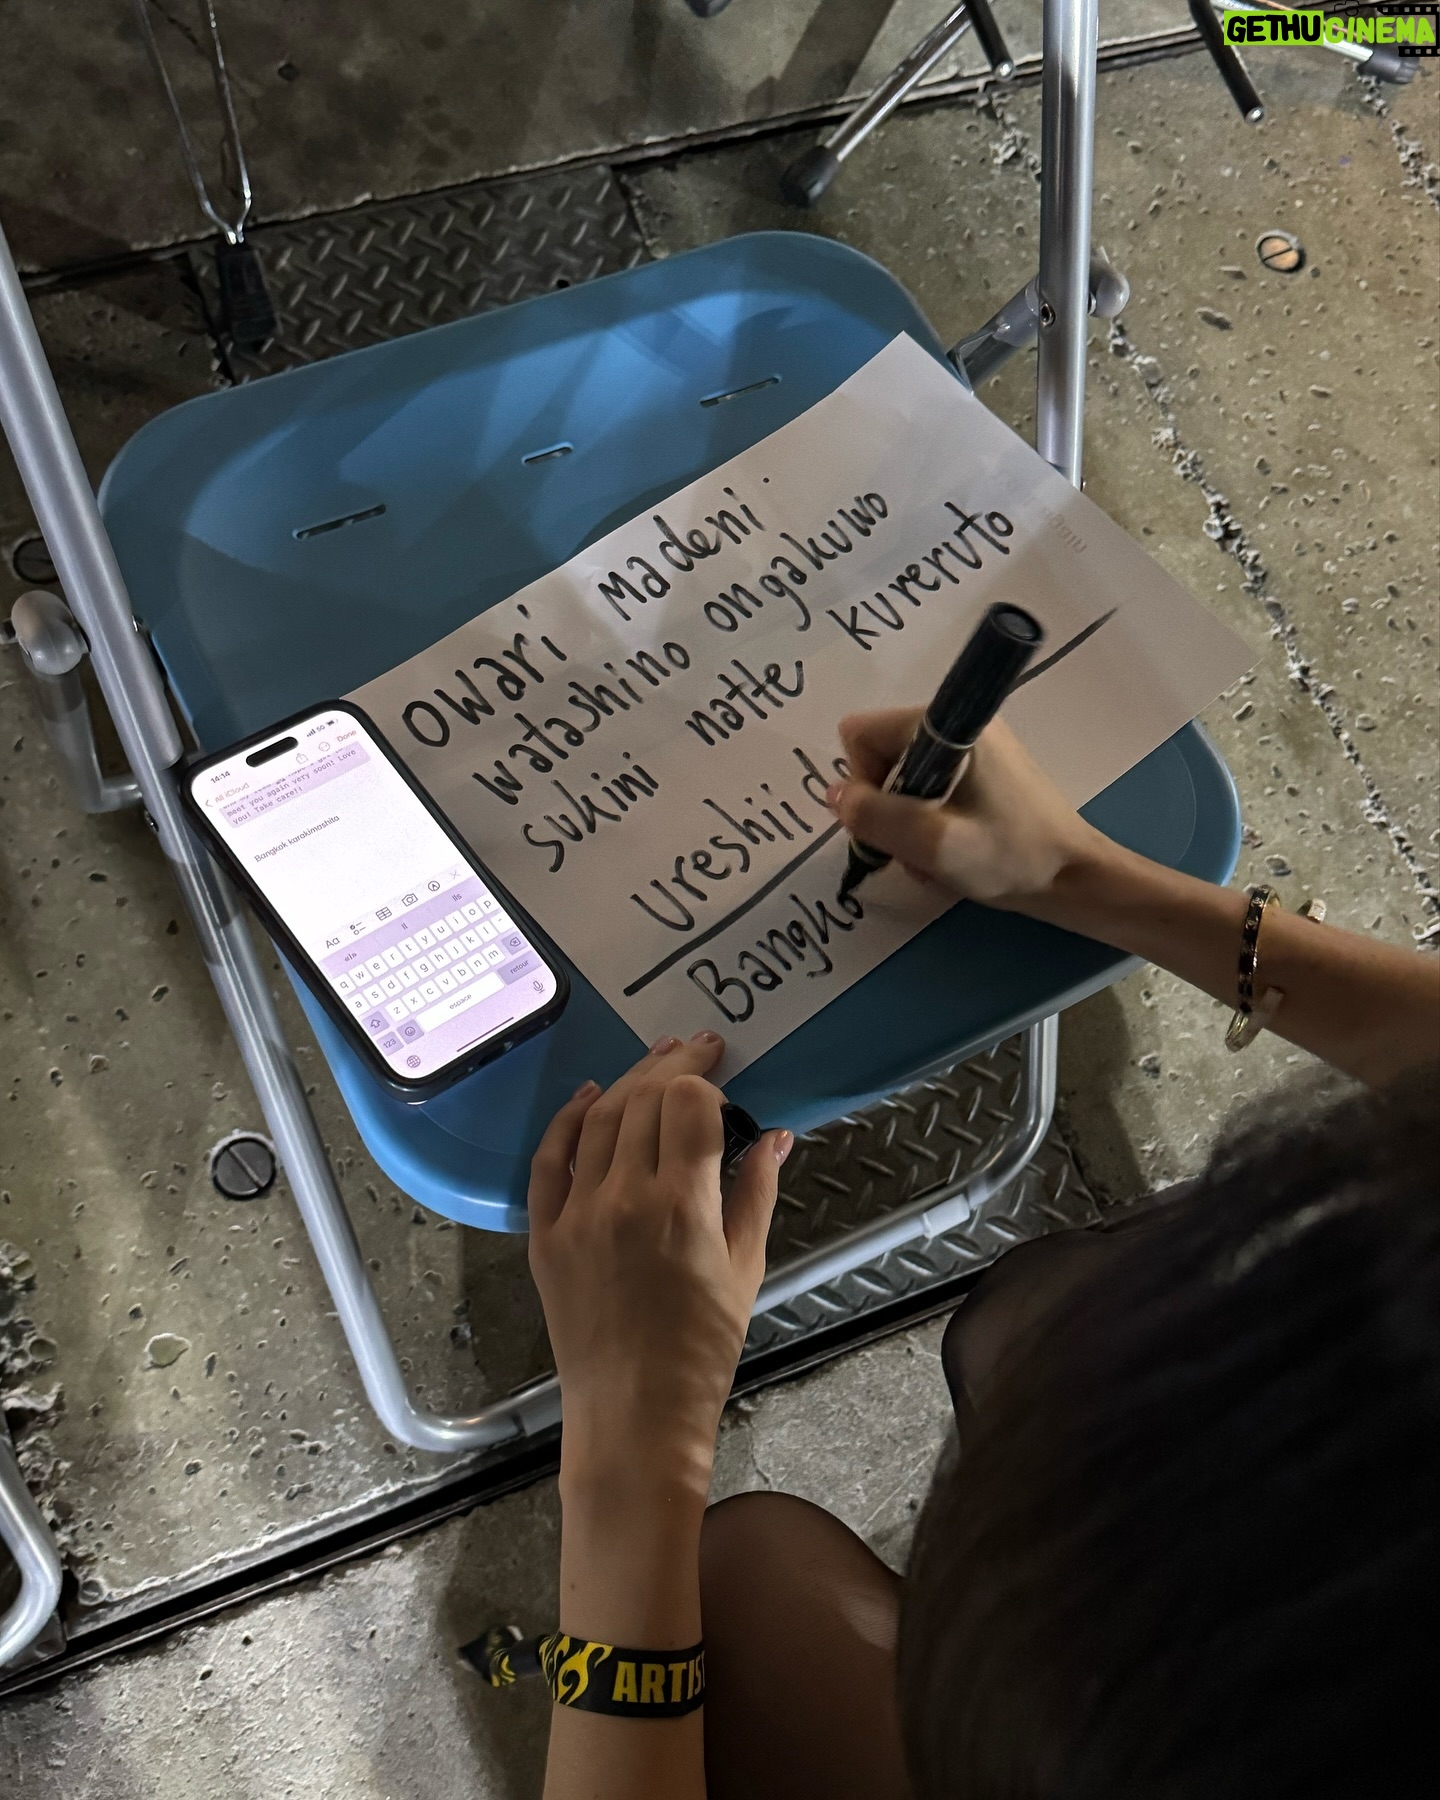 GETHUCINEMA
owari madeni.
watashino ongakuwo
sukini natte kureruto
ureshii de
Bangko
14:14
5G
All iCloud
Done
meet you again very soon! Love
you! Take care!!
Bangkok karakimashita
Aa
«I»
I
Ils
q w e r t y u i o p
a s d f g h j k l
z x c v b n m
123
espace
retour
ARTIS